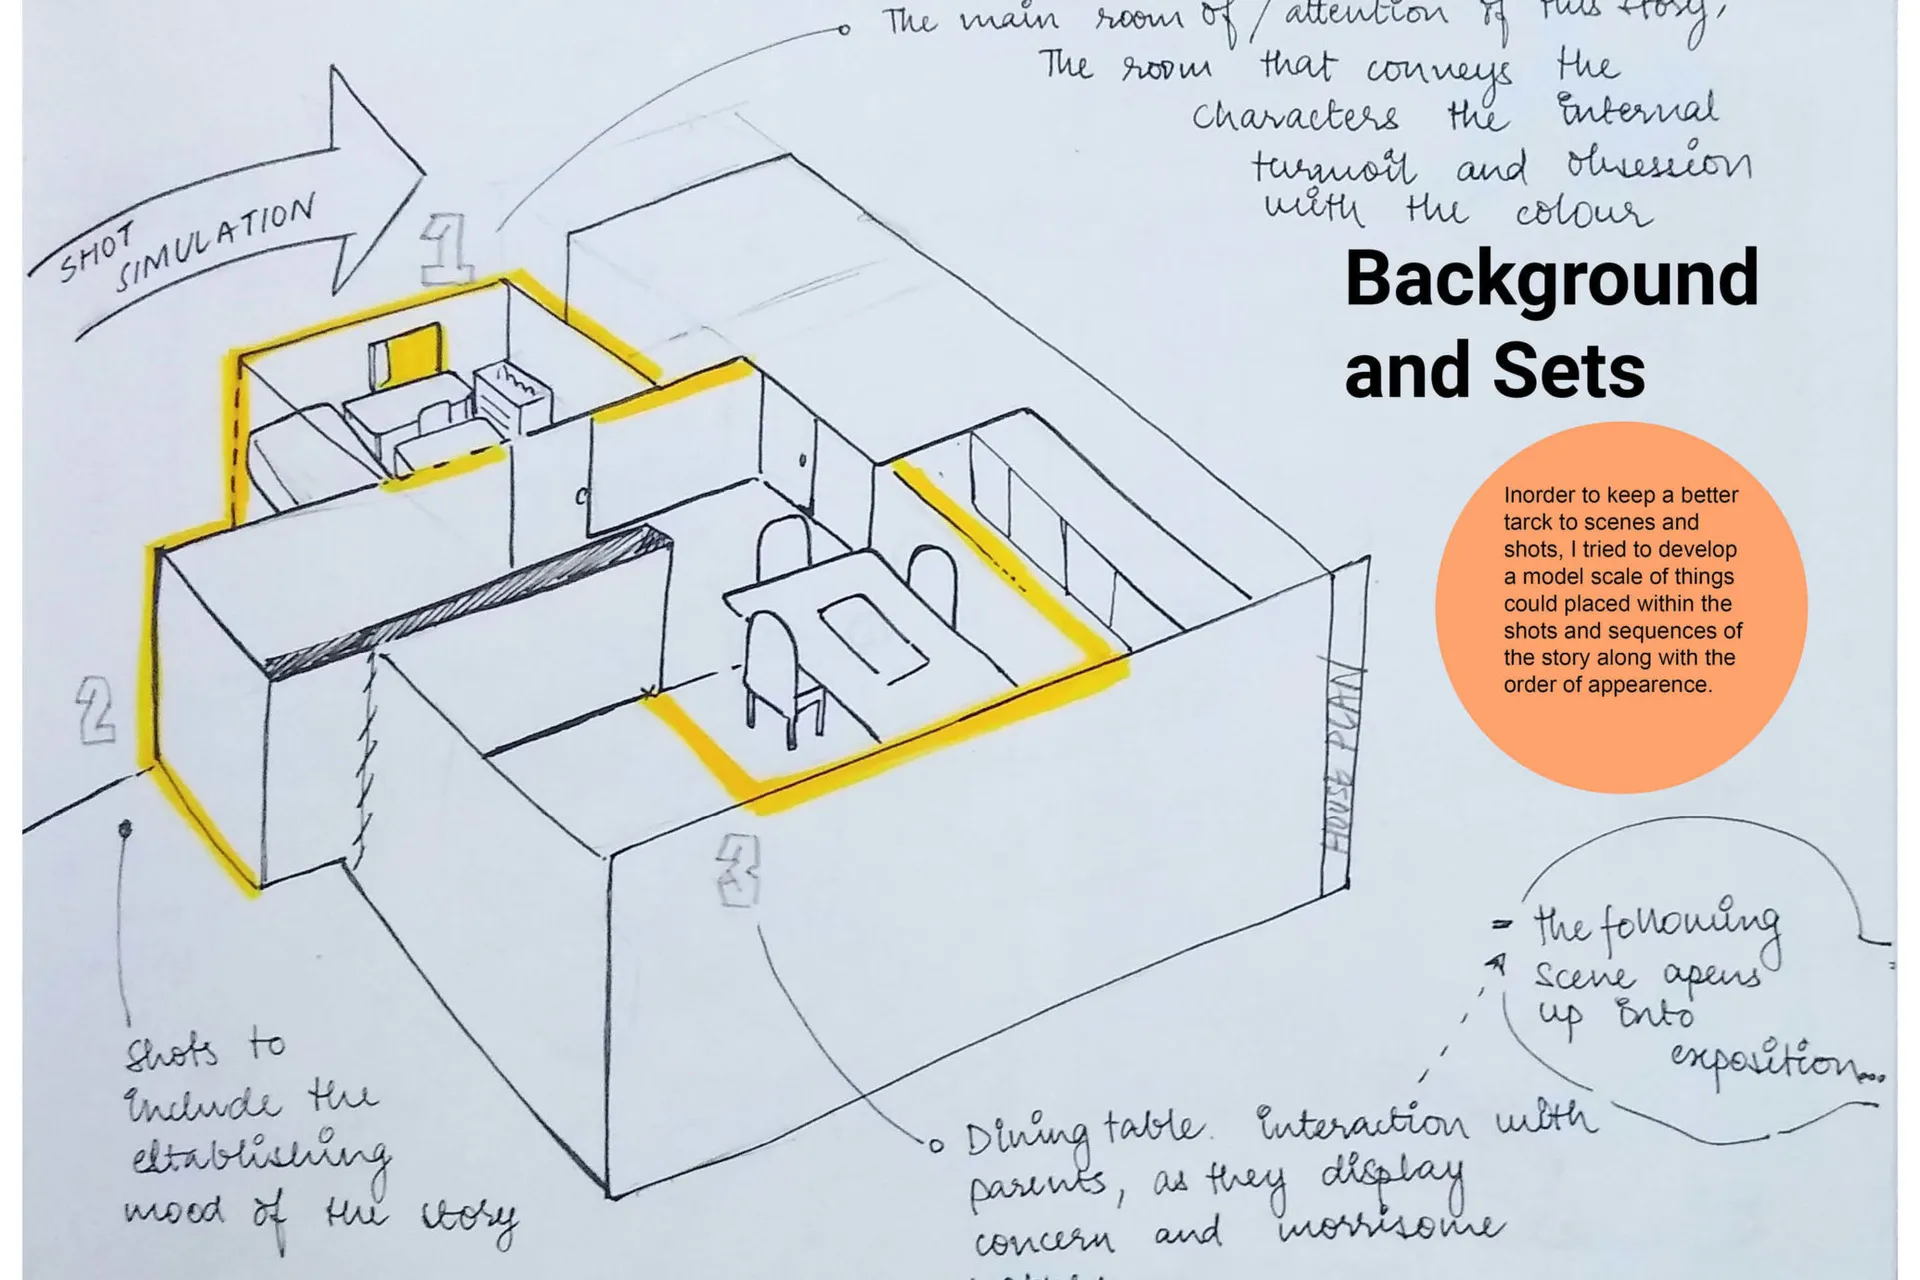 The main room of / attention of this story,
The room that conveys the
characters the internal
turmoil and obsession
with the colour
SHOT
SIMULATION
1
Background
and Sets
Inorder to keep a better
tarck to scenes and
shots, I tried to develop
a model scale of things
could placed within the
shots and sequences of
the story along with the
order of appearence.
2
HOUSE PLAN
3
= the following
scene apens
up into
exposition...
Shots to
include the
establishing
mood of the story
Dining table. interaction with
parents, as they display
concern and worrisome